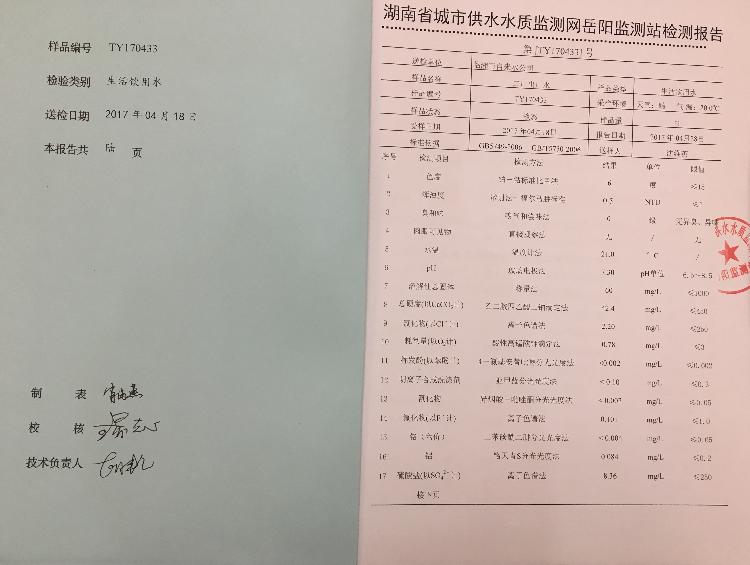 样品编号 TY170433
检验类别 生活饮用水
送检日期 2017 年 04 月 18 日
本报告共 陆 页
制 表
校 核
技术负责人
湖南省城市供水水质监测网岳阳监测站检测报告
第[TY170433]号
送检单位 自来水公司
样品名称 水 样品类型 生活饮用水
样品编号 TY170433 采样环境 天气：晴 气温：20.0℃
样品状态 液态 样品量
收样日期 2017年04月18日 报告日期 2017年04月28日
标准依据 GB5749-2006 GB/T5750-2006 送样人
序号 检测项目 检测方法 结果 单位 限值
1 色度 铂－钴标准比色法 6 度 ≤15
2 浑浊度 NTU
3 臭和味 嗅气和尝味法 0 级 无异臭、异味
4 肉眼可见物 直接观察法 无 / 无
5 水温 温度计法 21.0 ℃ /
6 pH 玻璃电极法 7.30 pH单位 6.5~8.5
7 溶解性总固体 称量法 60 mg/L ≤1000
8 总硬度(以CaCO₃计) 乙二胺四乙酸二钠滴定法 42.4 mg/L ≤450
9 氯化物(以Cl⁻计) 离子色谱法 2.20 mg/L ≤250
10 耗氧量(以O₂计) 酸性高锰酸钾滴定法 0.78 mg/L ≤3
11 挥发酚(以苯酚计) 4－氨基安替吡啉分光光度法 <0.002 mg/L ≤0.002
12 阴离子合成洗涤剂 亚甲蓝分光光度法 <0.10 mg/L ≤0.3
13 氰化物 异烟酸－吡唑酮分光光度法 <0.002 mg/L ≤0.05
14 氟化物(以F⁻计) 离子色谱法 0.101 mg/L ≤1.0
15 铬（六价） 二苯碳酰二肼分光光度法 <0.004 mg/L ≤0.05
16 铝 铬天青S分光光度法 0.084 mg/L ≤0.2
17 硫酸盐(以SO₄²⁻计) 离子色谱法 8.36 mg/L ≤250
供水水质监
阳监测站